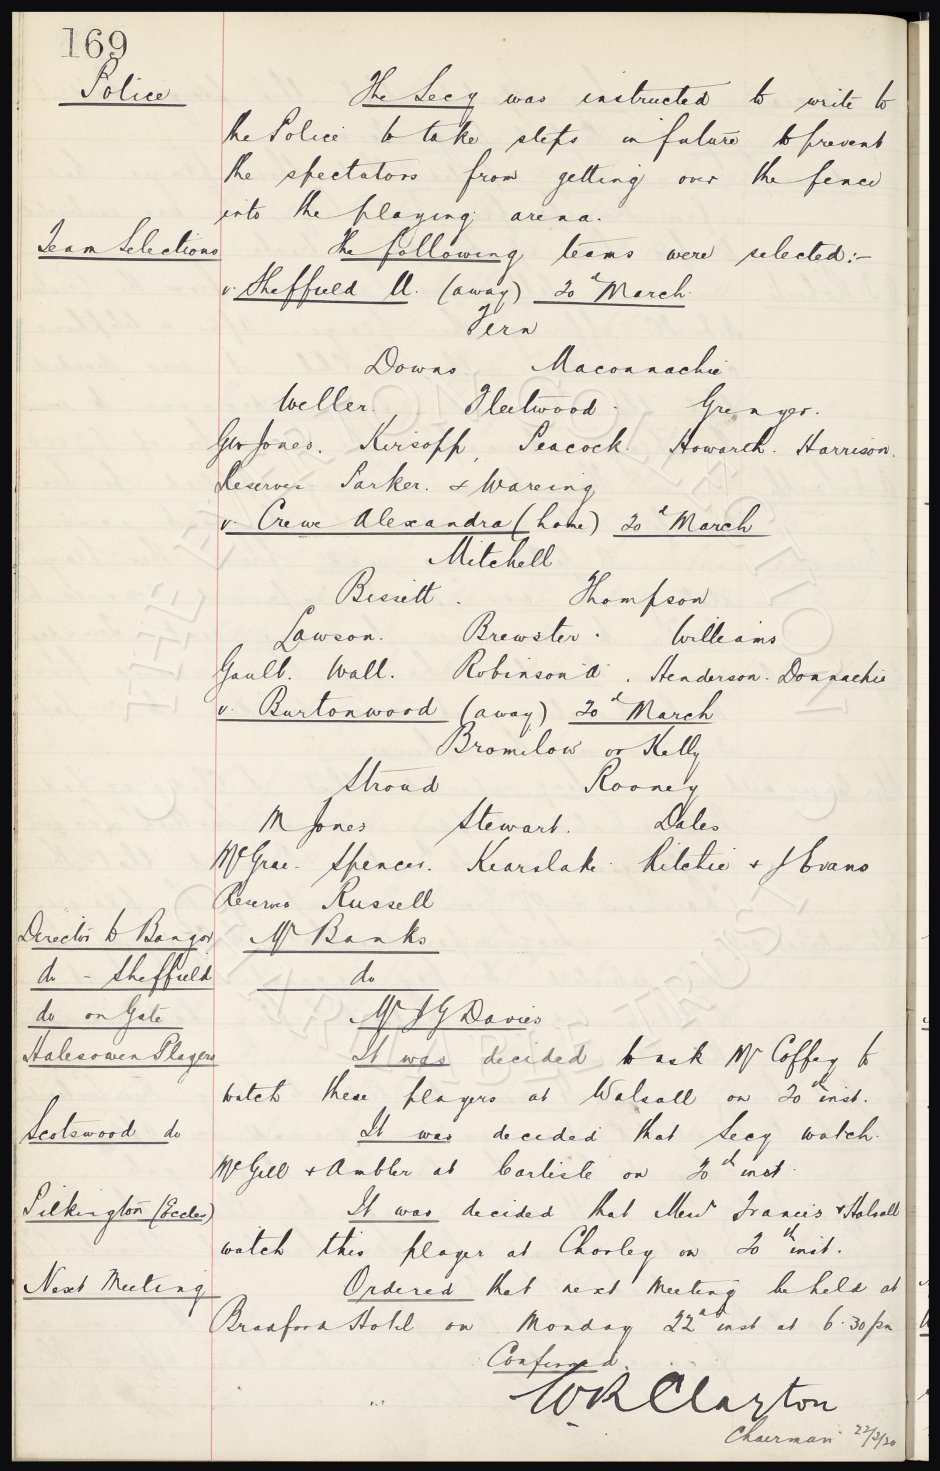 169
Police
The Secy was instructed to write to
the Police to take steps in future to prevent
the spectators from getting over the fence
into the playing arena.
Team Selections
The following teams were selected:-
v. Sheffield U. (away) 20th March
Fern
Downs Maconnachie
Weller. Fleetwood. Grenyer.
Geo Jones. Kirsopp, Peacock. Howarth. Harrison.
Reserves Parker. & Wareing
v. Crewe Alexandra (home) 20th March
Mitchell
Bissett. Thompson
Lawson. Brewster. Williams
Gault. Wall. Robinson A. Henderson. Donnachie
v. Burtonwood (away) 20th March
Bromilow or Kelly
Stroud Rooney
M Jones Stewart. Dales
McGrae. Spencer. Kearslake. Ritchie & J Evans
Reserves Russell
Director to Bangor Mr Banks
do - Sheffield do
do on Gate Mr J G Davies
Halesowen Players
It was decided to ask Mr Coffey to
watch these players at Walsall on 20th inst.
Scotswood do
It was decided that Secy watch
McGill & Ambler at Carlisle on 20th inst.
Pilkington (Eccles)
It was decided that Messrs Francis & Halsall
watch this player at Chorley on 20th inst.
Next Meeting
Ordered that next meeting be held at
Bradford Hotel on Monday 22nd inst at 6.30 pm
Confirmed.
W R Clayton
Chairman 22/3/20
THE EVERTON COLLECTION
CHARITABLE TRUST